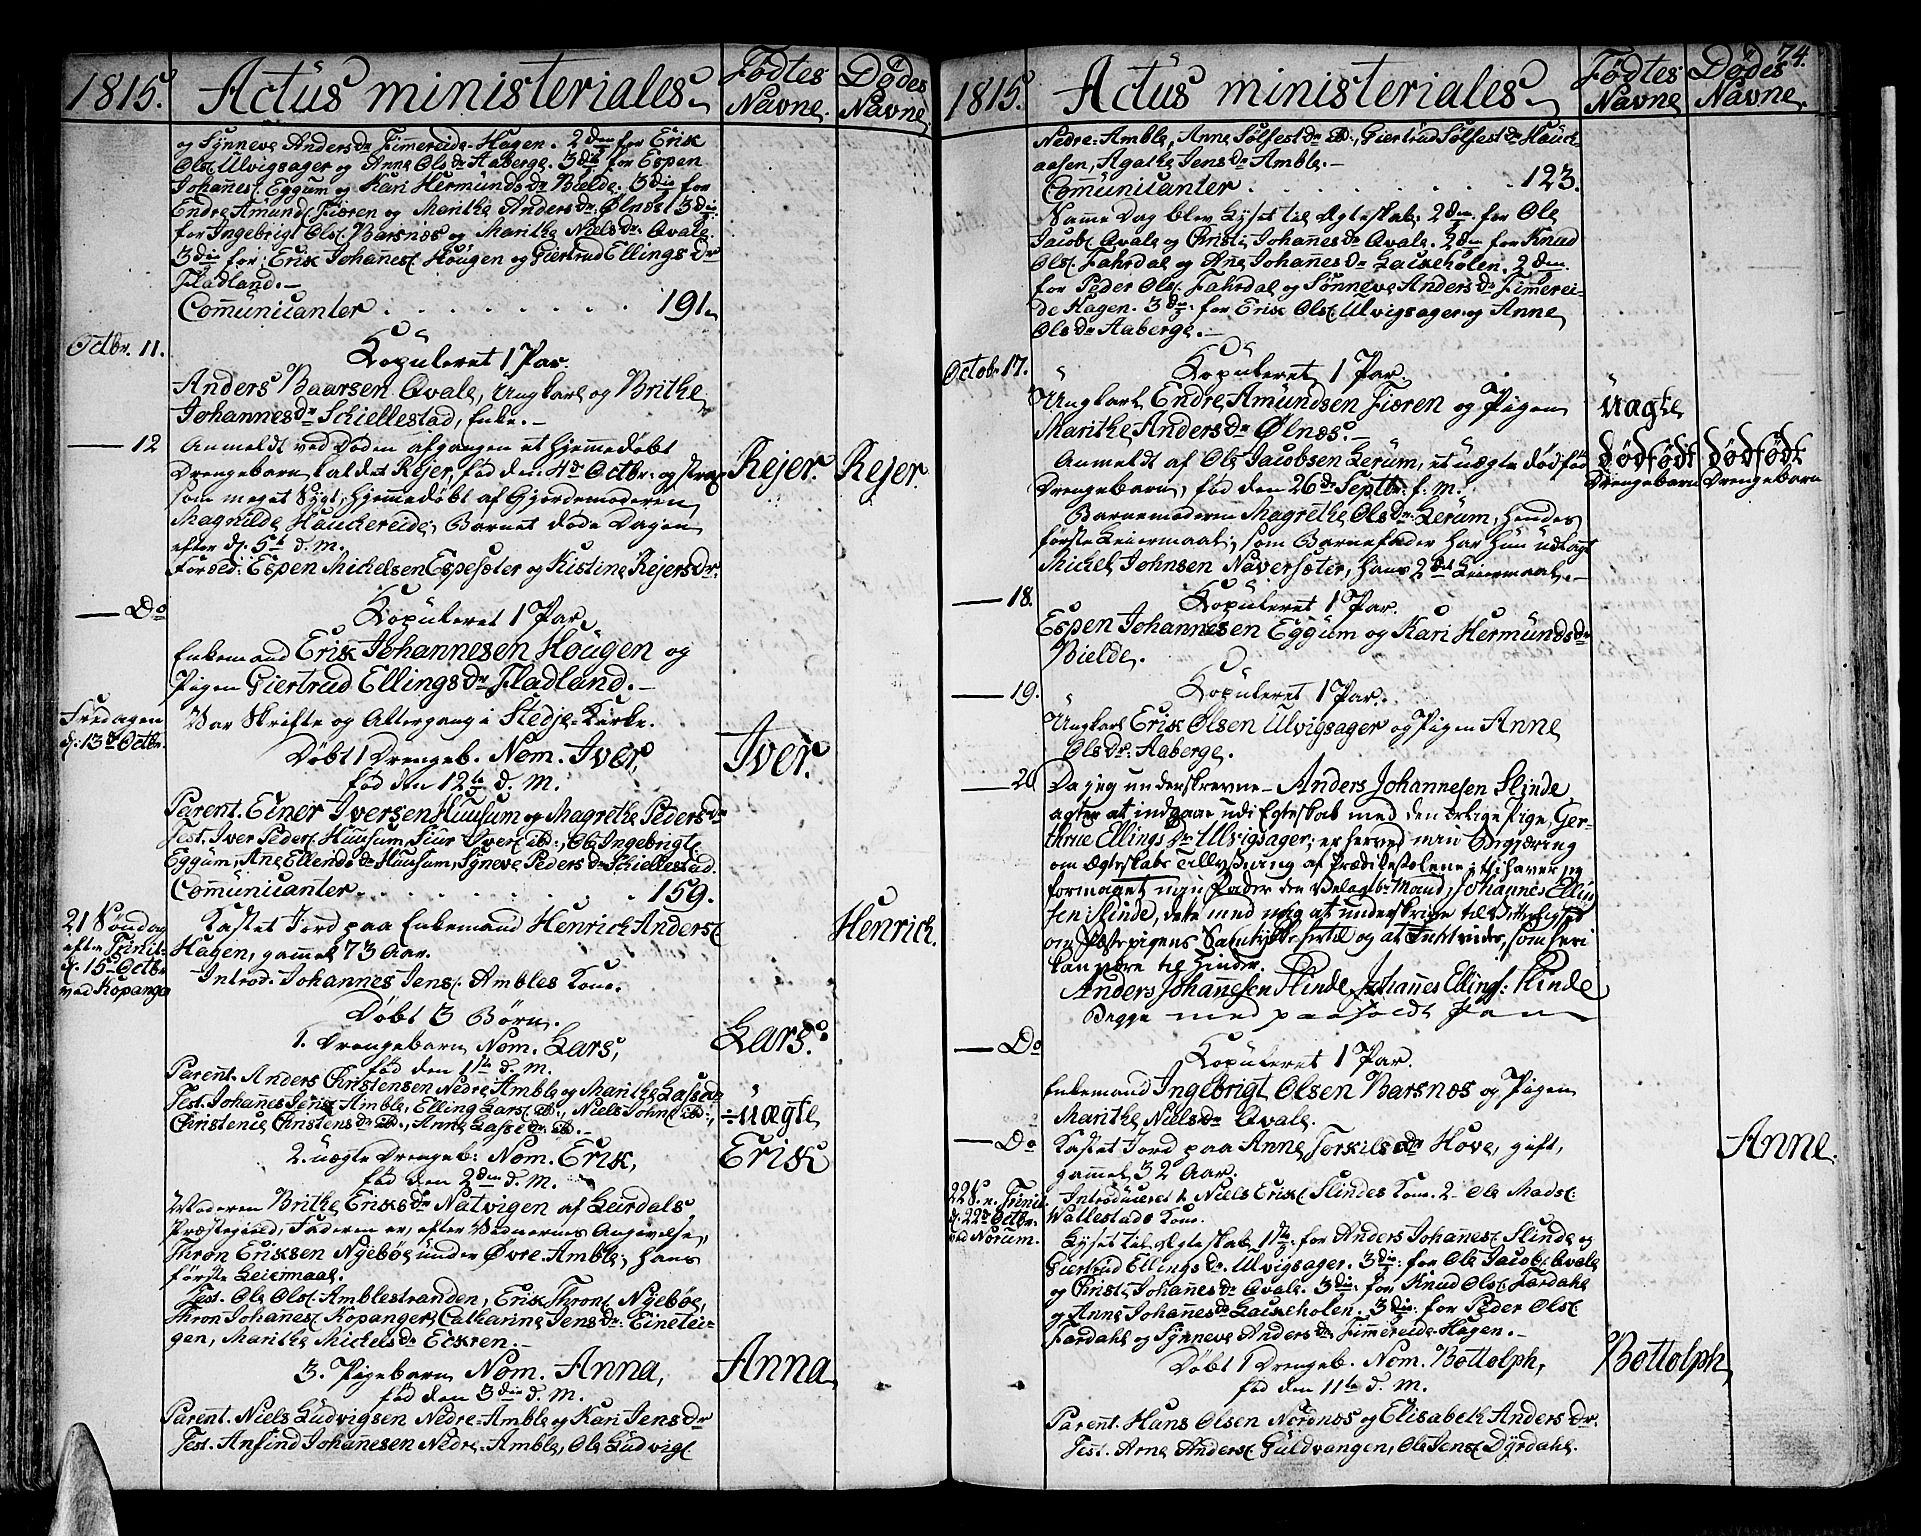 1815. Actus ministeriales Födtes Navne. Dödes Navne
og Synneve Andersdr Fimereide-Hagen. 2den for Erik
Ols. Ulvigsager og Anne Olsdr Aaberge. 3die for Espen
Johanes. Eggum og Kari Hermundsdr Bielde. 3die for
Endre Amunds. Fiæren og Marithe Andersdr. Ølnæs. 3die
for Ingebrigt Ols. Barsnæs og Marithe Nielsdr. Qvale.
3die for Erik Johanes. Hougen og Giertrud Ellingsdr
Fladland.
Comunicanter . . . . . . . . 191.
Octbr. 11.
Kopuleret 1 Par.
Anders Baarsen Qvale, Ungkarl og Brithe
Johannesdr Schiellestad, Enke.
12 Anmeldt ved Doden afgangen et hjemmedöbt
Drengebarn kaldet Rejer, föd den 4de Octbr. og strax
som meget svagt, hjemmedöbt af Gjordemoderen
Magnilde Hauchereide; Barnet döde Dagen
efter d. 5te d. M.
Foræld: Espen Michelsen Espesæter og Kistine Rejersdr.
Rejer. Rejer.
Do
Kopuleret 1 Par.
Enkemand Erik Johannesen Hougen og
Pigen Giertrud Ellingsdr Fladland.
Fredagen
d. 13de Octbr.
Var Skrifte og Altergang i Stedje-Kirke.
Döbt 1 Drengeb. Nom. Iver,
föd den 12te d. M.
Iver.
Parent. Einer Iversen Huusum og Magrethe Pedersdr
Test. Iver Peders. Huusum, Siur Ivers. ibd., Ole Ingebrigts.
Eggum, Ane Ellendsdr Huusum, Synneve Pedersdr Schiellestad.
Comunicanter . . . . . . . . 159.
21 Söndag
efter Trinit.
d. 15 Octbr
ved Kopanger
Kastet Jord paa Enkemand Henrich Anders.
Hagen, gammel 73 Aar.
Henrich.
Introd. Johannes Jens. Ambles Kone.
Döbt 3 Börn.
1. Drengebarn Nom. Lars,
föd den 1te d. M.
Lars.
Parent. Anders Christensen Nedre-Amble og Marithe Lassedr
Test. Johanes Jens. Amble, Elling Lars. ibd., Niels Johns. ibd.,
Christenie Christensdr ibd., Anne Lassedr ibd.
uægte
2. uægte Drengeb. Nom. Erik,
föd den 2den d. M.
Erik
Moderen Brithe Eriksdr Natvigen af Leirdals
Præstegield, Faderen er, efter Moderens Angivelse,
Thron Eriksen Nyeböe under Øvre-Amble; hans
förste Leiermaal.
Test. Ole Ols. Amblestranden, Erik Throns. Nyeböe,
Thron Johanes. Kopanger, Catharine Jensdr. Einetei-
gen, Marithe Michelsdr Eckren.
3. Pigebarn Nom. Anna,
föd den 3die d. M.
Anna
Parent. Niels Ludvigsen Nedre-Amble og Kari Jensdr
Test. Ansind Johannesen Nedre-Amble, Ole Ludvigs.
1815. Actus ministeriales Födtes Navne Dödes Navne. 74.
Nedre-Amble, Anne Sølfestdr ibd., Giertrud Sølfestdr Hauch-
aasen, Agathe Jensdr Amble.
Comunicanter . . . . . . . . 123.
Samme Dag blev Lyset til Ægteskab: 2den for Ole
Jacobs. Qvale og Christi Johannesdr Qvale. 2den for Knud
Ols. Fahrdal og Ane Johannesdr Lauseholen. 2den
for Peder Ols. Fahrdal og Sönneve Andersdr Fimerei-
de Hagen. 3die for Erik Ols. Ulvigsager og Anne
Olsdr Aaberge.
Octobr 17.
Kopuleret 1 Par.
Ungkarl Endre Amundsen Fiæren og Pigen
Marithe Andersdr Ølnæs.
Anmeldt af Ole Jacobsen Lerum, et uægte dödföd
Drengebarn, föd den 26de Septbr. f. M.
uægte
dödfödt dödfödt
Drengebarn Drengebarn
Barnemoderen Magrethe Olsdr. Lerum, hendes
förste Leiermaal; som Barnefader har hun udlagt
Michel Johnsen Naversæter, hans 2det Leiermaal.
18.
Kopuleret 1 Par.
Espen Johannesen Eggum og Kari Hermundsdr
Bielde.
19.
Kopuleret 1 Par.
Ungkarl Erik Olsen Ulvigsager og Pigen Anne
Olsdr. Aaberge.
20 Da jeg underskrevne Anders Johannesen Slinde
agter at indgaae udi Egteskab med den ærlige Pige, Ger-
thrue Ellingsdr Ulvigsager; er herved min Begjæring
om Ægteskabs Tillysning af Prædikestolene, thi haver jeg
formaaet min Fader den Velagte Mand, Johannes Elling-
sen Slinde, dette med mig at underskrive til Vitterlighed
om Fæstepigens Samtykke hertil og at Intet vides, som heri
kan være til Hinder.
Anders Johannesen Slinde Johannes Ellings: Slinde
Begge med paaholdt Pen
Do
Kopuleret 1 Par.
Enkemand Ingebrigt Olsen Barsnæs og Pigen
Marithe Nielsdr Qvale.
Do Kastet Jord paa Anne Torkilsdr Hove, gift,
gammel 32 Aar.
Anne.
22 S. e. Trinit.
d. 22de Octbr.
ved Norum.
Introduceret 1. Niels Eriks. Slindes Kone. 2. Ole Mads.
Wallestads Kone.
Lyset til Ægteskab 1te for Anders Johanes. Slinde og
Giertrud Ellingsdr. Ulvigsager. 3die for Ole Jacobs. Qvale
og Christi Johanesdr Qvale. 3die for Knud Ols. Fardahl
og Anne Johanesdr Lauseholen. 3die for Peder Ols.
Fardahl og Synneve Andersdr Fimmereide-Hagen.
Döbt 1 Drengeb. Nom. Bottolph,
föd den 11te d. M.
Bottolph
Parent. Hans Olsen Nordnæs og Elisabeth Andersdr.
Test. Arne Anders. Guldvangen, Ole Jens. Dyrdahl.